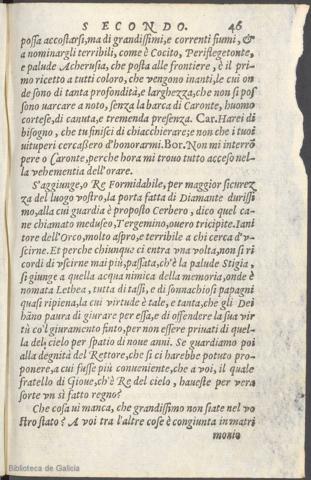 SECONDO. 46
possa accostarsi, ma di grandissimi, e correnti fiumi, &
a nominargli terribili, come è Cocito, Periflegetonte,
e palude Acherusia, che posta alle frontiere, è il pri-
mo ricetto a tutti coloro, che vengono inanti, le cui on
de sono di tanta profondità, e larghezza, che non si pos
sono varcare a noto, senza la barca di Caronte, huomo
cortese, di canuta, e tremenda presenza. Car. Harei di
bisogno, che tu finisci di chiacchierare; e non che i tuoi
vituperi cercassero d'honorarmi. Bor. Non mi interrō
pere o Caronte, perche hora mi trouo tutto acceso nel-
la vehementia dell'orare.
S'aggiunge, o Re Formidabile, per maggior sicurez
za del luogo vostro, la porta fatta di Diamante durissi
mo, alla cui guardia è proposto Cerbero, dico quel ca-
ne chiamato meduseo, Tergemino, ouero tricipite. Ianī
tore dell'Orco, molto aspro, e terribile a chi cerca d'v-
scirne. Et perche chiunque ci entra vna volta, non si ri
cordi di vscirne mai più, passata, ch'è la palude Stigia,
si giunge a quella acqua nimica della memoria, onde è
nomata Lethea, tutta di tassi, e di sonnachiosi papagni
quasi ripiena, la cui virtude è tale, e tanta, che gli Dei
hāno paura di giurare per essa, e di offendere la sua vir
tù co'l giuramento finto, per non essere priuati di quel-
la del, cielo per spatio di noue anni. Se guardiamo poi
alla degnità del Rettore, che si ci harebbe potuto pro-
ponere, a cui fusse più conueniente, che a voi, il quale
fratello di Gioue, ch'è Re del cielo, haueste per vera
sorte vn sì fatto regno?
Che cosa vi manca, che grandissimo non siate nel vo
stro stato? A voi tra l'altre cose è congiunta in matri
monio
Biblioteca de Galicia